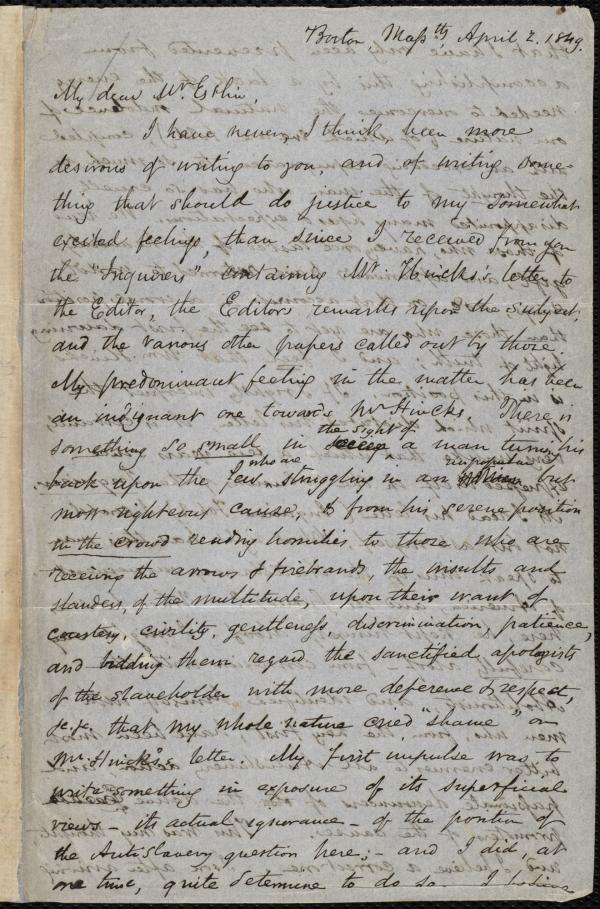 Boston Massts, April 2. 1849.
My dear Mr. Estlin,
I have never, I think been more
desirous of writing to you, and of writing some-
thing that should do justice to my somewhat
excited feelings, than since I received from you
the "Inquirers" containing Mr. Hincks's letter to
the Editor, the Editors remarks upon the subject,
and the various other papers called out by those.
My predominant feeling in the matter has been
an indignant one towards Mr Hincks. There is
something so small in the sight of a man turning his
back upon the few who are struggling in an unpopular but
most righteous cause, & from his serene position
in the crowd reading homilies to those who are
receiving the arrows & firebrands, the insults and
slanders, of the multitude, upon their want of
courtesy, civility, gentleness, discrimination, patience,
and bidding them regard the sanctified apologists
of the slaveholder with more deference & respect,
&c. &c. that my whole nature cried "shame" on
Mr. Hincks's letter. My first impulse was to
write something in exposure of its superficial
views - its actual ignorance - of the position of
the AntiSlavery question here; - and I did, at
one time, quite determine to do so. I